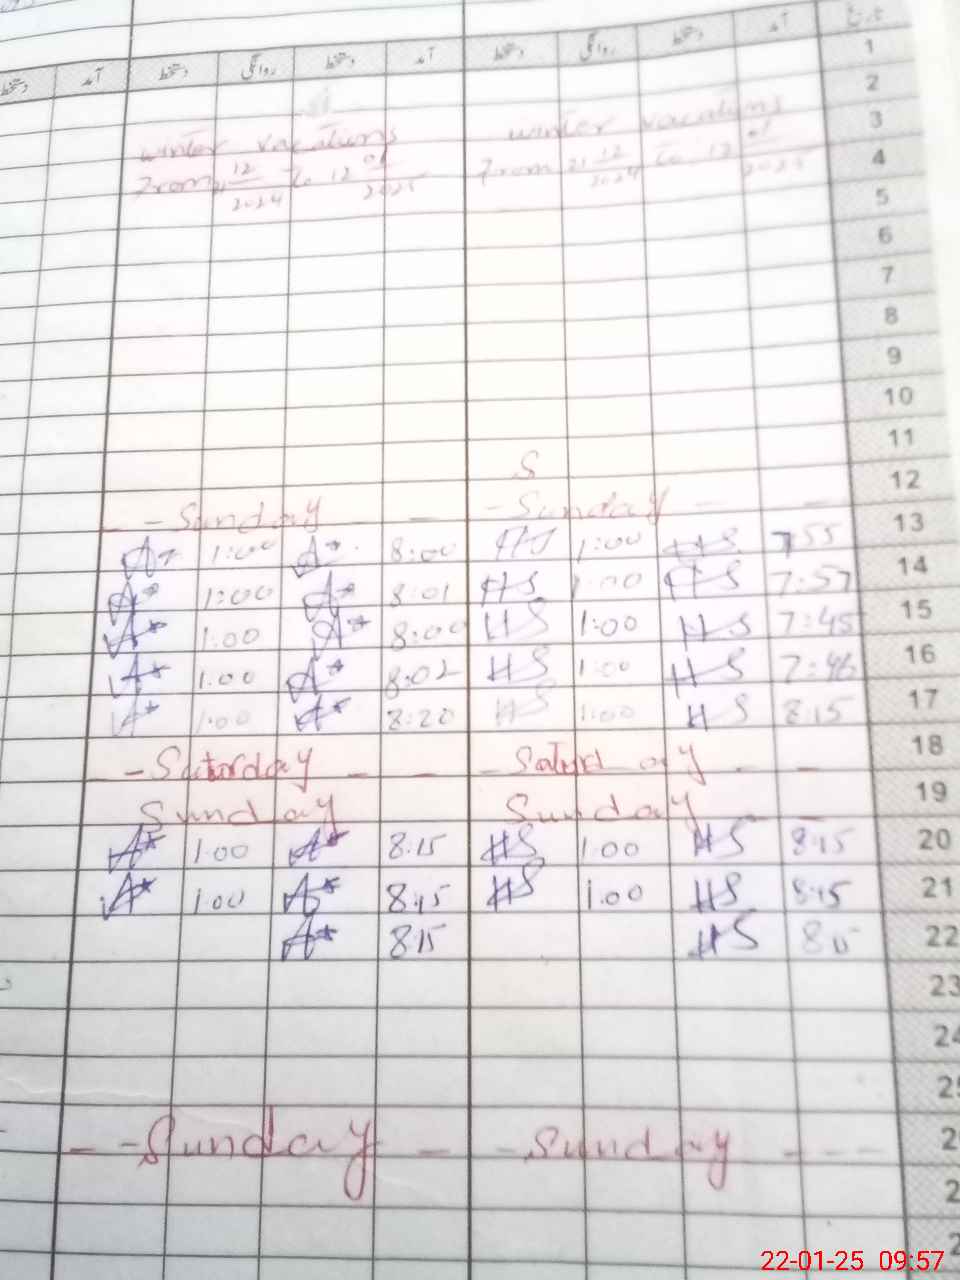 دستخط آمد دستخط روانگی دستخط آمد دستخط روانگی دستخط آمد تاریخ
1
2
winter vacations winter vacations 3
From 21 12/2024 to 12 01/2025 From 21 12/2024 to 12 01/2025 4
5
6
7
8
9
10
11
S
- - Sunday - - Sunday - - 12
A* 1:00 A* 8:00 HS 1:00 HS 7:55 13
A* 1:00 A* 8:01 HS 1:00 HS 7:57 14
A* 1:00 A* 8:00 HS 1:00 HS 7:45 15
A* 1:00 A* 8:02 HS 1:00 HS 7:46 16
A* 1:00 A* 8:20 HS 1:00 HS 8:15 17
- - Saturday - - - Saturday - - 18
Sunday Sunday - - 19
A* 1.00 A* 8:15 HS 1.00 HS 8:15 20
A* 1.00 A* 8:15 HS 1.00 HS 8:15 21
A* 8:15 HS 8:15 22
23
24
25
- - Sunday - - Sunday - - - 26
22-01-25 09:57